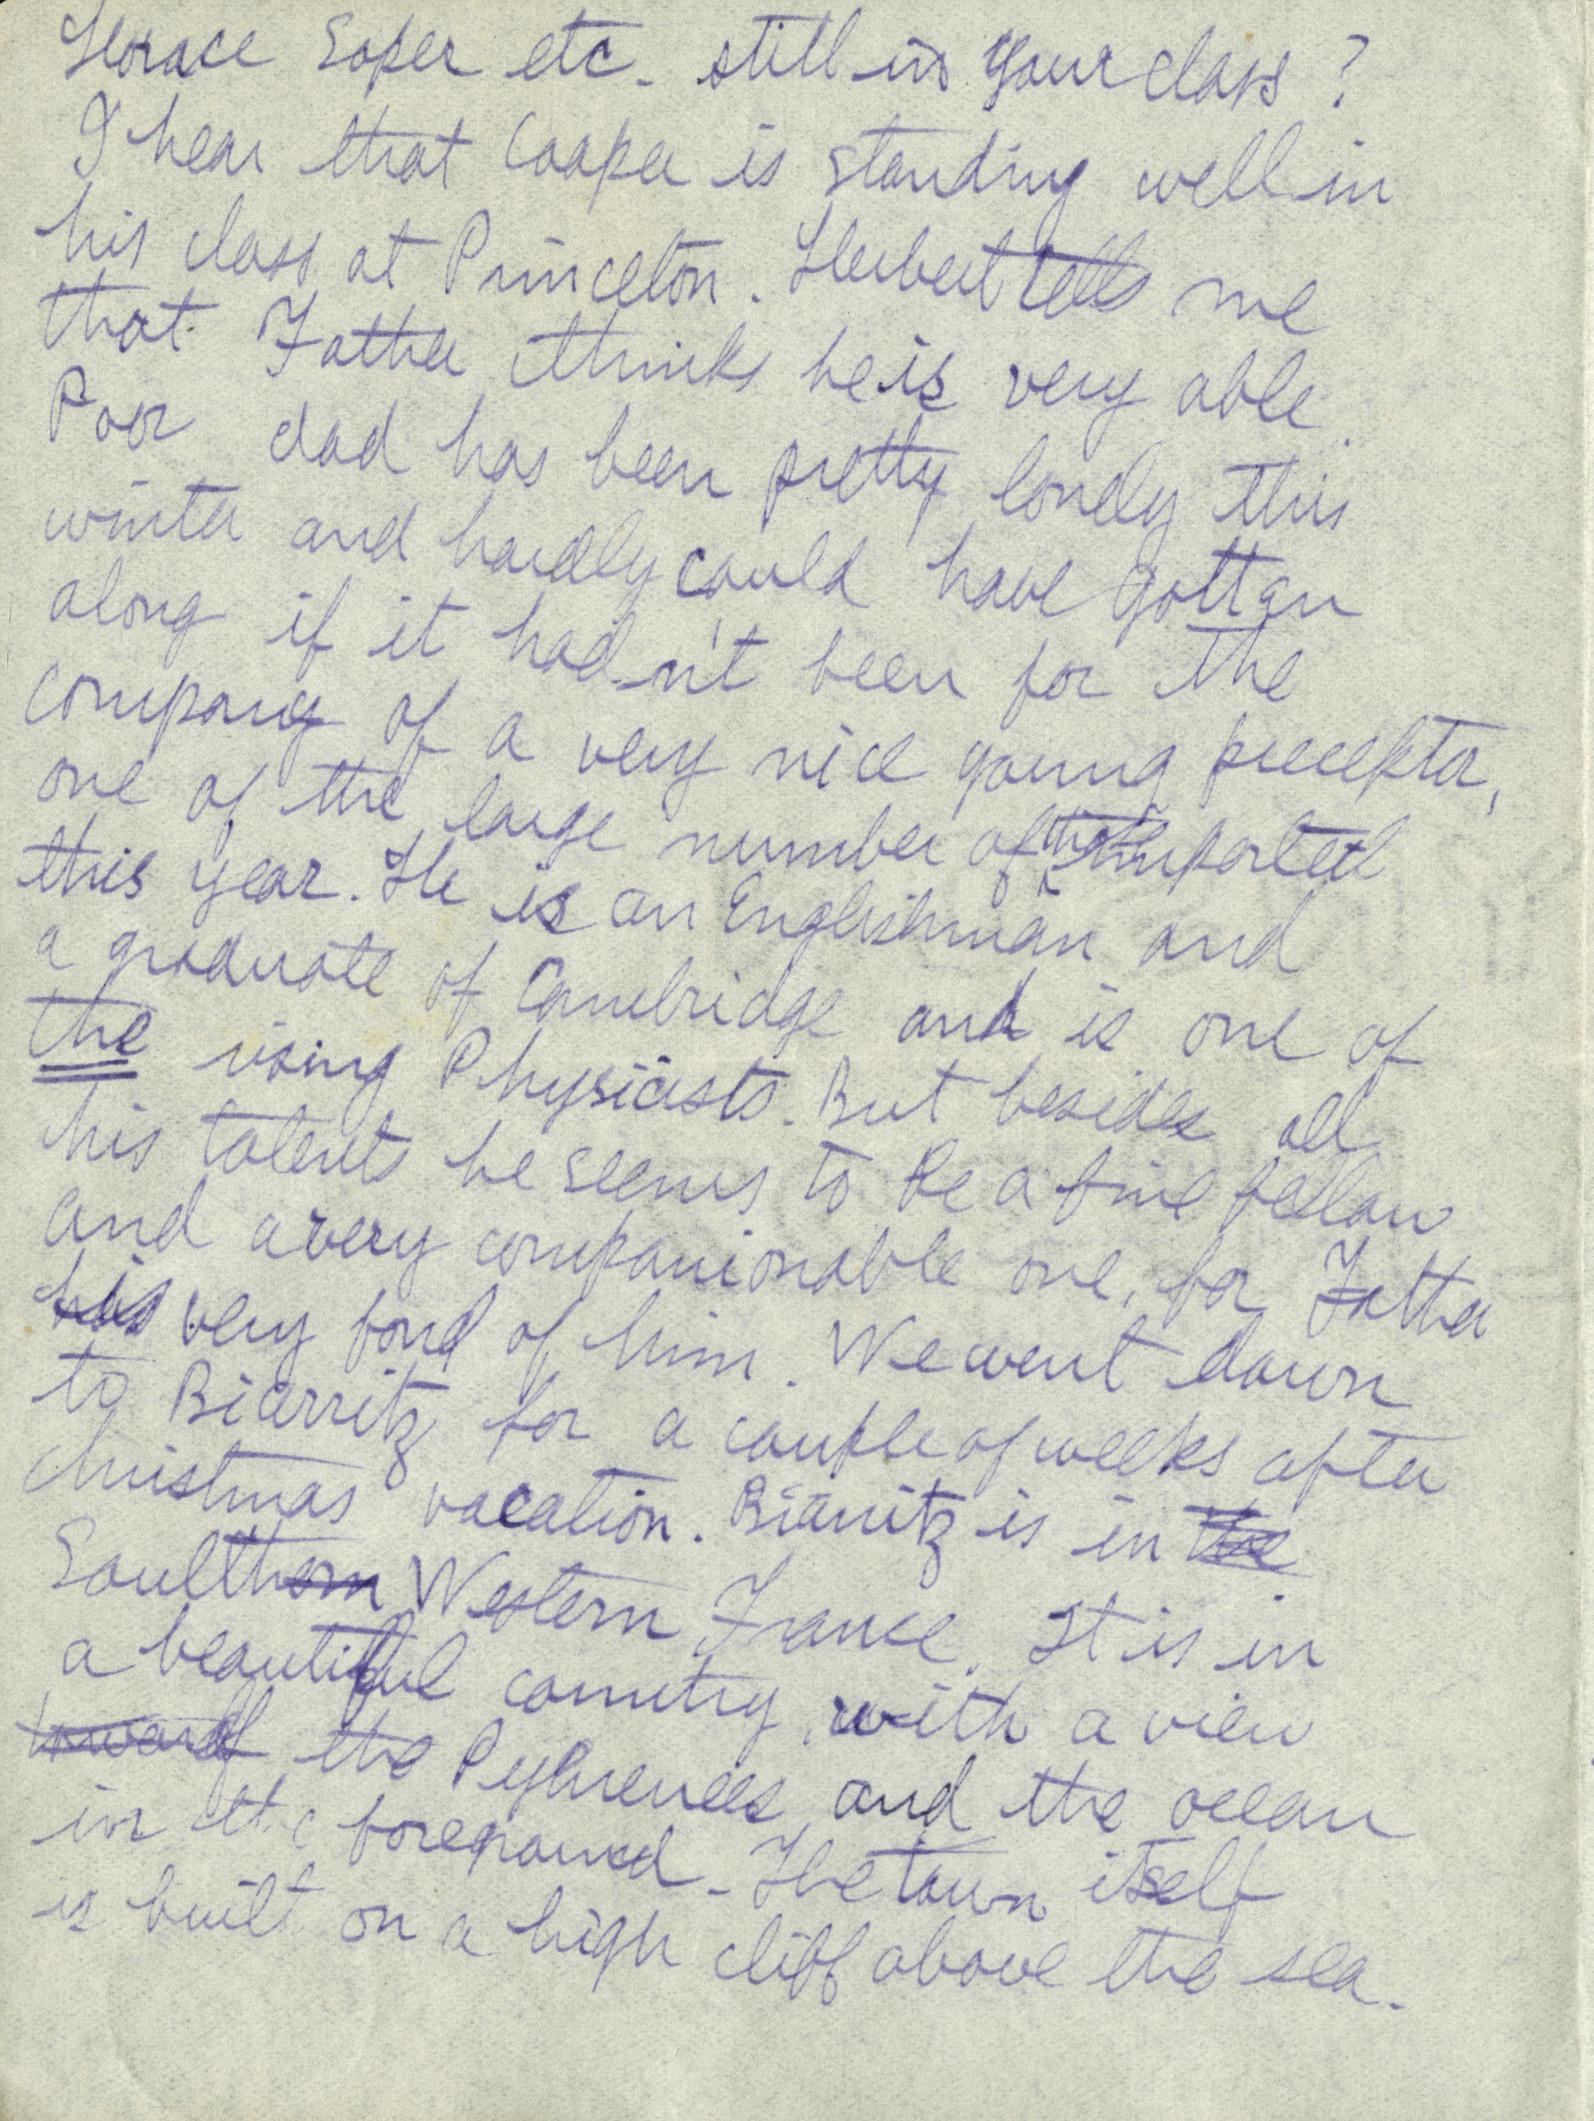 Horace Soper etc. still in your class?
I hear that Cooper is standing well in
his class at Princeton. Herbert tells me
that Father thinks he is very able.
Poor dad has been pretty lonely this
winter and hardly could have gotten
along if it hadn't been for the
company of a very nice young preceptor,
one of the large number of those imported
this year. He is an Englishman and
a graduate of Cambridge and is one of
the rising Physicists. But besides all
his talents he seems to be a fine fellow
and a very companionable one, for Father
is very fond of him. We went down
to Biarritz for a couple of weeks after
Christmas vacation. Biarritz is in the
Southern Western France. It is in
a beautiful country, with a view
toward the Pyhrenees and the ocean
in the foreground. The town itself
is built on a high cliff above the sea.